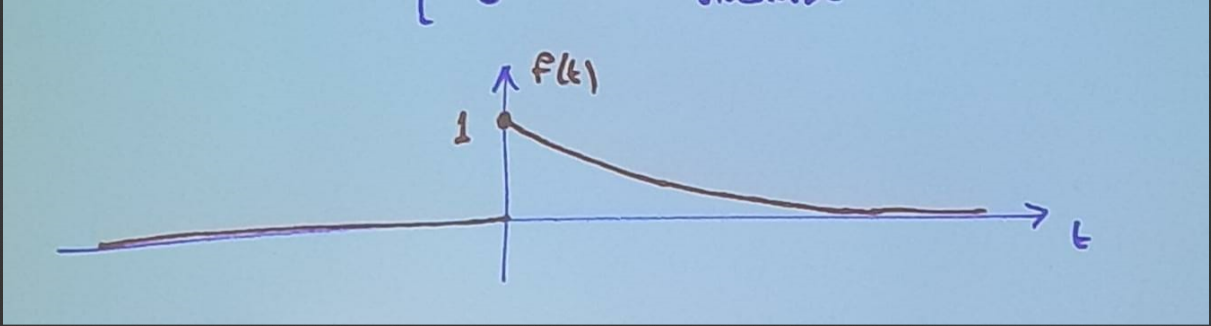 f(t)
1
t